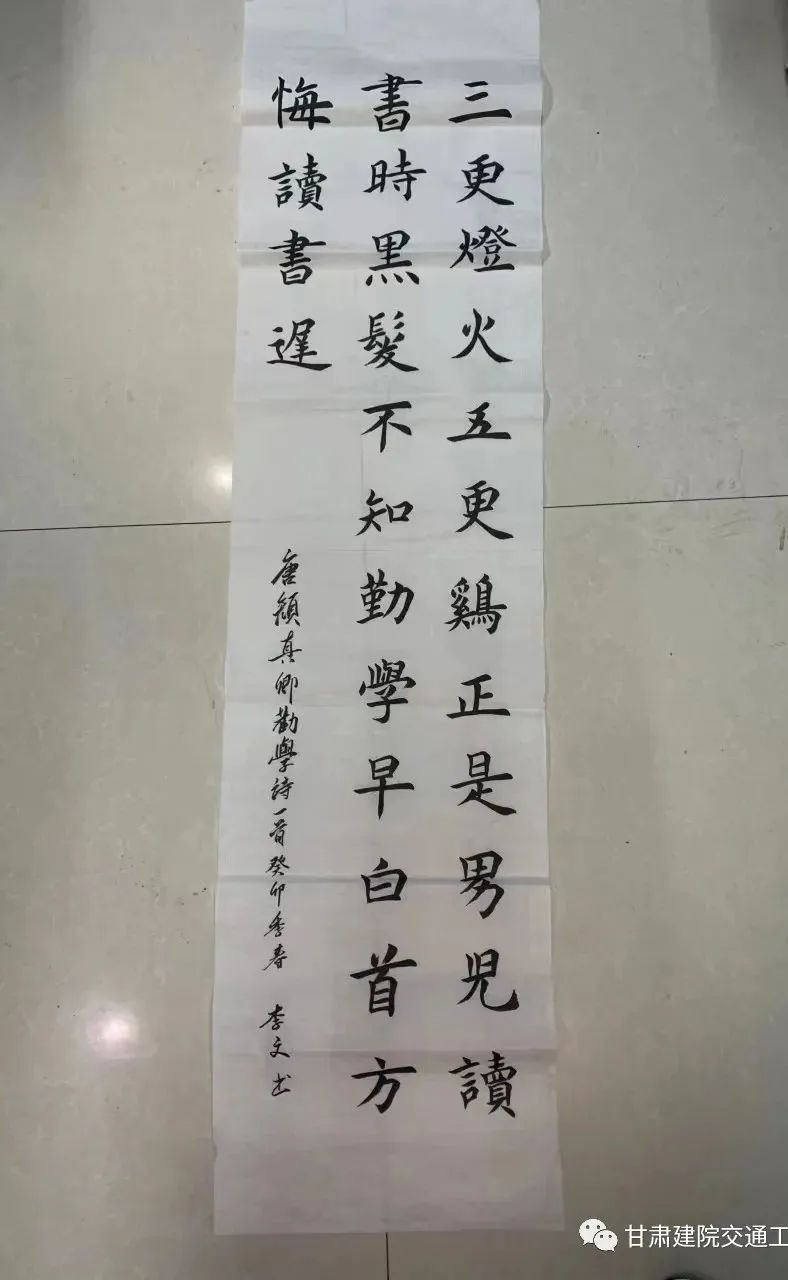 三更燈火五更鷄正是男兒讀
書時黑髮不知勤學早白首方
悔讀書遲
唐顏真卿勸學詩一首癸卯季春 李文书
甘肃建院交通工